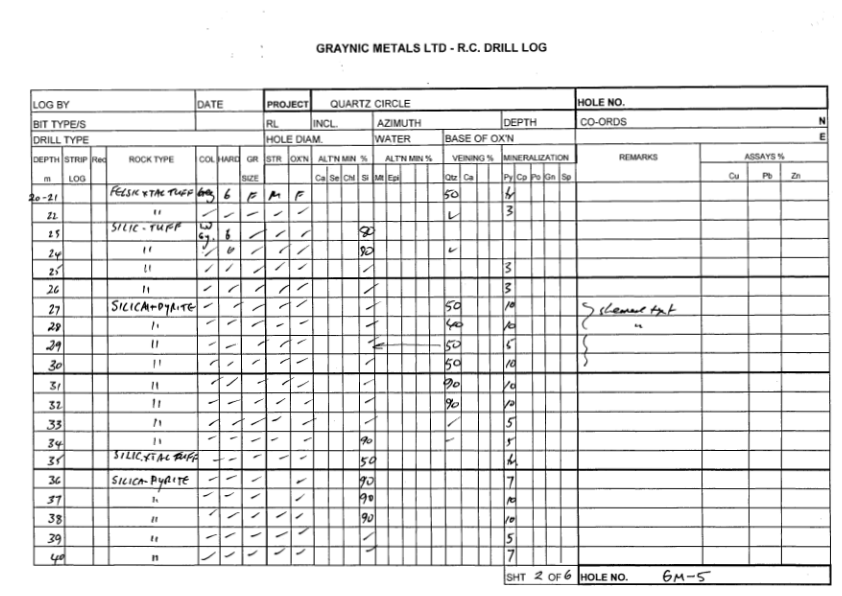 GRAYNIC METALS LTD - R.C. DRILL LOG
LOG BY DATE PROJECT QUARTZ CIRCLE HOLE NO.
BIT TYPE/S RL INCL. AZIMUTH DEPTH CO-ORDS N
DRILL TYPE HOLE DIAM. WATER BASE OF OX'N E
DEPTH STRIP Rec ROCK TYPE COL HARD GR STR OX'N ALT'N MIN % ALT'N MIN % VEINING % MINERALIZATION REMARKS ASSAYS %
m LOG SIZE Ca Se Chl Si Mt Epi Qtz Ca Py Cp Po Gn Sp Cu Pb Zn
20-21 FELSIC XTAL TUFF 6 F M F 50 tr
22 " ✓ - - - - ✓ 3
23 SILIC - TUFF W Gy. 6 ✓ ✓ ✓ 80
24 " ✓ ✓ ✓ ✓ 80 ✓
25 " ✓ ✓ ✓ ✓ ✓ ✓ 3
26 " ✓ ✓ ✓ ✓ ✓ ✓ 3
27 SILICA+PYRITE ✓ ✓ ✓ ✓ ✓ ✓ 50 10
28 " ✓ ✓ ✓ ✓ ✓ ✓ 40 10 "
29 " ✓ ✓ ✓ ✓ ✓ ✓ 50 5
30 " ✓ ✓ ✓ ✓ ✓ ✓ 50 10
31 " ✓ ✓ ✓ ✓ ✓ ✓ 90 10
32 " ✓ ✓ ✓ ✓ ✓ ✓ 90 10
33 " ✓ ✓ ✓ ✓ ✓ ✓ ✓ 5
34 " ✓ ✓ ✓ ✓ ✓ 90 ✓ 5
35 SILIC. XTAL TUFF - - ✓ ✓ ✓ 50 tr
36 SILICA-PYRITE ✓ ✓ ✓ ✓ 90 7
37 " ✓ ✓ ✓ ✓ 90 10
38 " ✓ ✓ ✓ ✓ ✓ 90 10
39 " ✓ ✓ ✓ ✓ ✓ ✓ 5
40 " ✓ ✓ ✓ ✓ ✓ ✓ 7
SHT 2 OF 6 HOLE NO. GM-5